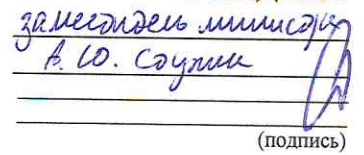 заместитель министра
А. Ю.
(подпись)